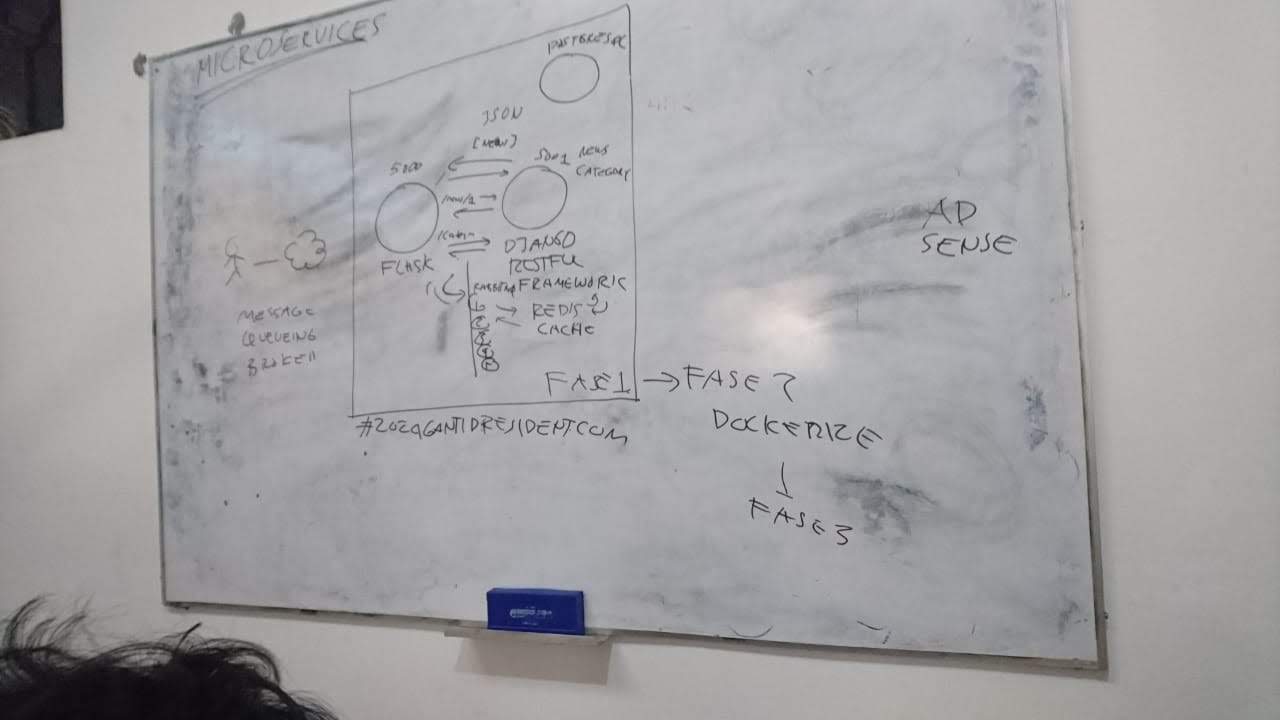 MICROSERVICES
POSTGRESQL
JSON
[NEWS]
5000
5001 NEWS
CATEGORY
/news/1
FLASK
DJANGO
RESTFUL
FRAMEWORK
REDIS
CACHE
MESSAGE
QUEUEING
BROKER
FASE 1 → FASE 2
DOCKERIZE
FASE 3
#2029GANTIPRESIDENT.COM
AD
SENSE